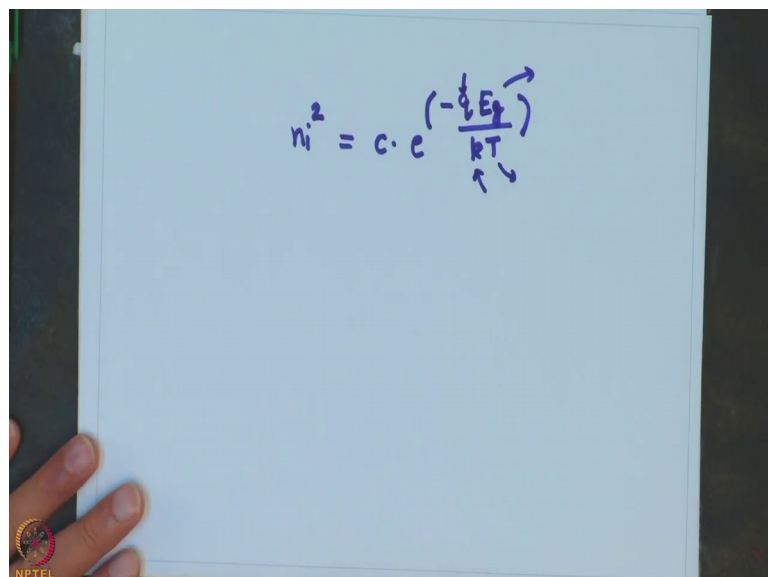 ni² = c · e^(-qEg/kT)
NPTEL